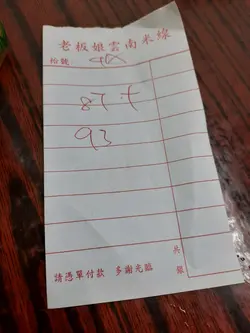 老板娘雲南米線
枱號
87.十
93
共
銀
請憑單付款 多謝光臨